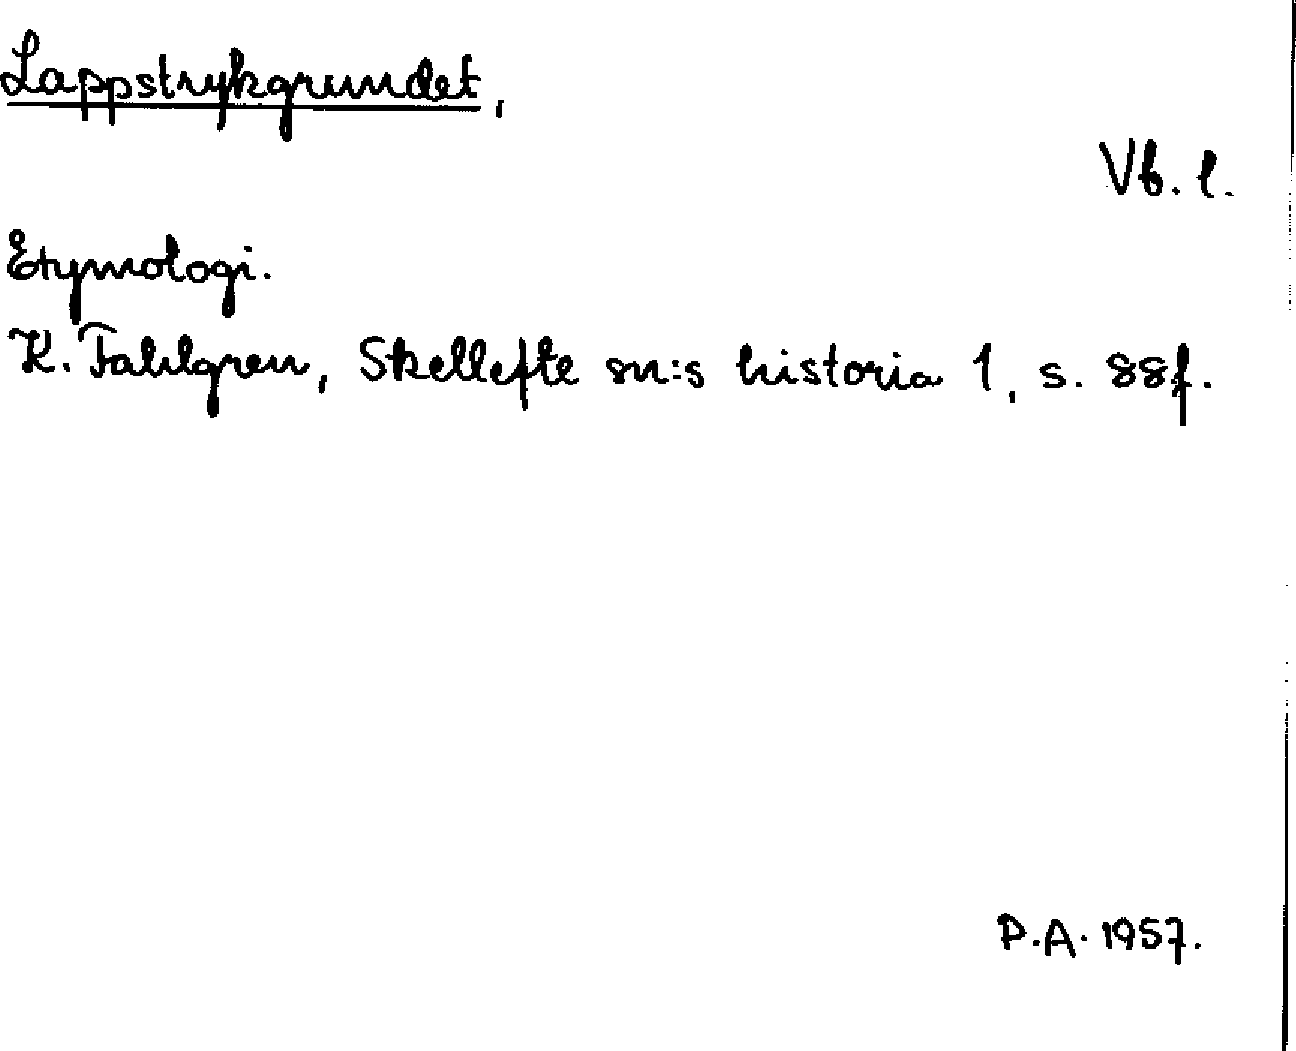 Lappstrykgrundet,
Vb. l.
Etymologi.
K. Fahlgren, Skellefte sn:s historia 1, s. 88f.
P.A. 1957.